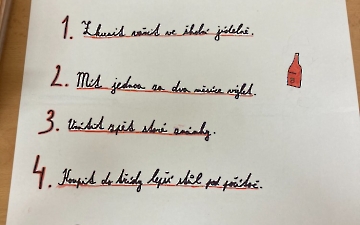 1. Zkusit vařit ve školní jídelně.
2. Mít jednou za dva měsíce výlet.
3. Vrátit zpět staré
4. Koupit do třídy lepší stůl pod počítač.